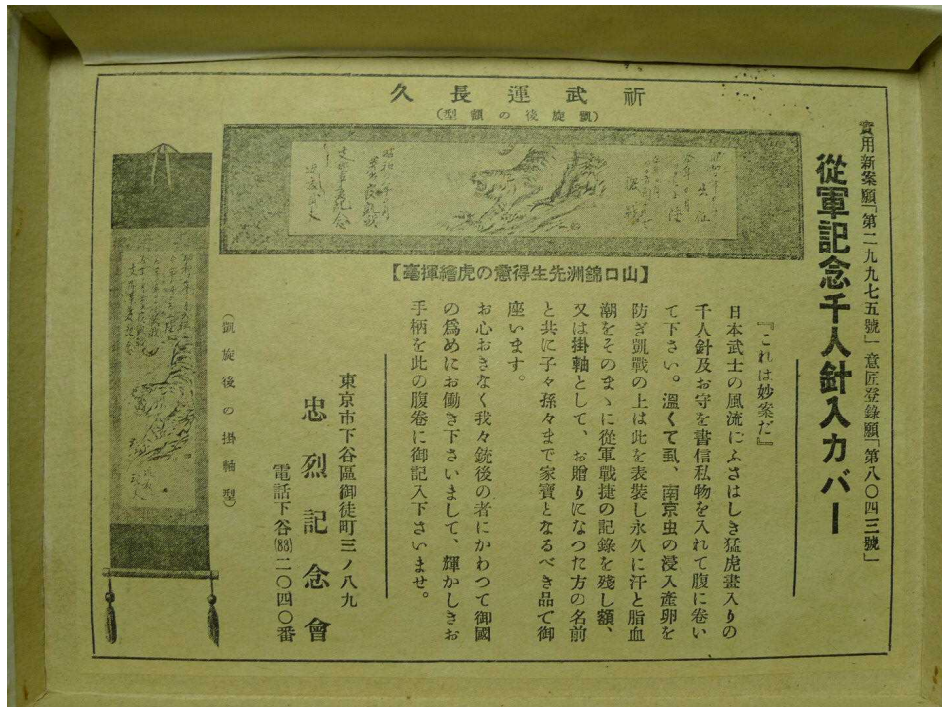 祈武運長久
(凱旋後の額型)
實用新案願「第二九九七五號」意匠登錄願「第八〇四三號」
從軍記念千人針入カバー
【山口錦洲先生得意の虎繪揮毫】
『これは妙案だ』
日本武士の風流にふさはしき猛虎畫入りの
千人針及お守を書信私物を入れて腹に卷い
て下さい。溫くて虱、南京虫の浸入產卵を
防ぎ凱戰の上は此を表裝し永久に汗と脂血
潮をそのまゝに從軍戰捷の記錄を殘し額、
又は掛軸として、お贈りになつた方の名前
と共に子々孫々まで家寶となるべき品で御
座います。
お心おきなく我々銃後の者にかわつて御國
の爲めにお働き下さいまして、輝かしきお
手柄を此の腹卷に御記入下さいませ。
東京市下谷區御徒町三ノ八九
忠烈記念會
電話下谷(83)二〇四〇番
(凱旋後の掛軸型)